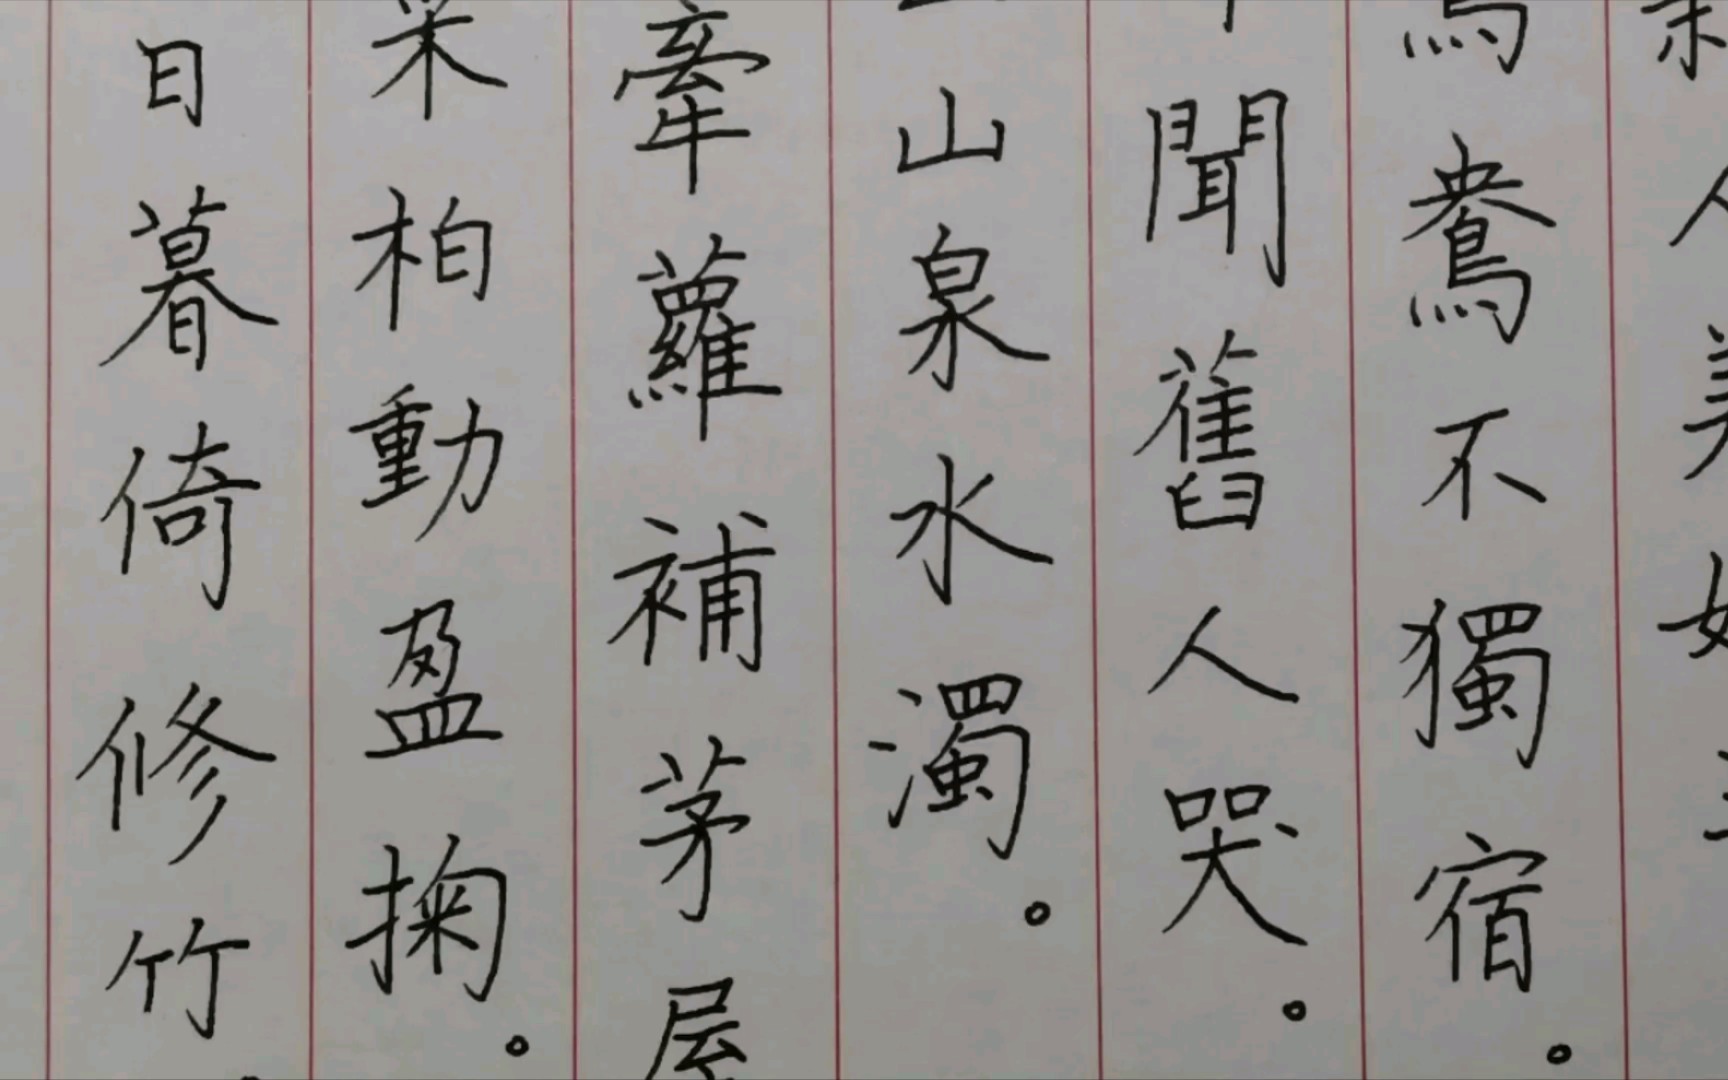 新人美如玉
鴛鴦不獨宿。
聞舊人哭。
山泉水濁。
牽蘿補茅屋
采柏動盈掬。
日暮倚修竹